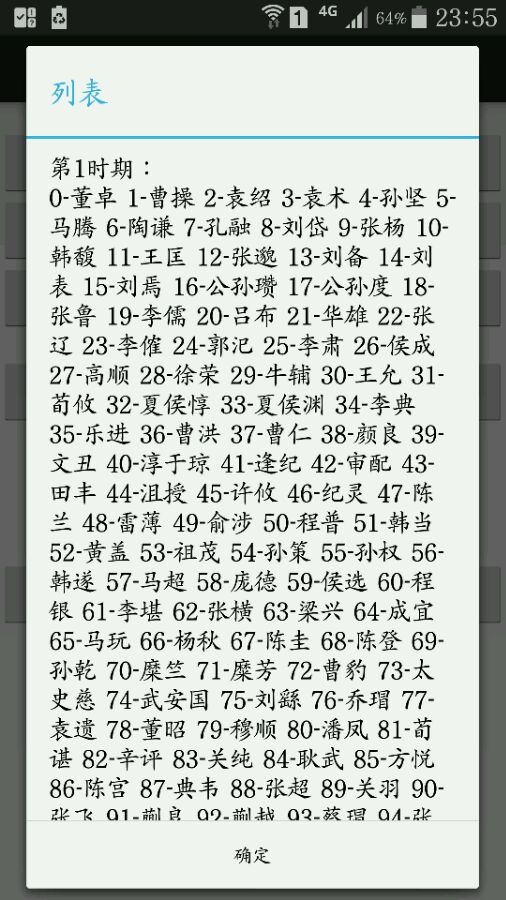 1 4G 64% 23:55
列表
第1时期：
0-董卓 1-曹操 2-袁绍 3-袁术 4-孙坚 5-
马腾 6-陶谦 7-孔融 8-刘岱 9-张杨 10-
韩馥 11-王匡 12-张邈 13-刘备 14-刘
表 15-刘焉 16-公孙瓒 17-公孙度 18-
张鲁 19-李儒 20-吕布 21-华雄 22-张
辽 23-李傕 24-郭汜 25-李肃 26-侯成
27-高顺 28-徐荣 29-牛辅 30-王允 31-
荀攸 32-夏侯惇 33-夏侯渊 34-李典
35-乐进 36-曹洪 37-曹仁 38-颜良 39-
文丑 40-淳于琼 41-逢纪 42-审配 43-
田丰 44-沮授 45-许攸 46-纪灵 47-陈
兰 48-雷薄 49-俞涉 50-程普 51-韩当
52-黄盖 53-祖茂 54-孙策 55-孙权 56-
韩遂 57-马超 58-庞德 59-侯选 60-程
银 61-李堪 62-张横 63-梁兴 64-成宜
65-马玩 66-杨秋 67-陈圭 68-陈登 69-
孙乾 70-糜竺 71-糜芳 72-曹豹 73-太
史慈 74-武安国 75-刘繇 76-乔瑁 77-
袁遗 78-董昭 79-穆顺 80-潘凤 81-荀
谌 82-辛评 83-关纯 84-耿武 85-方悦
86-陈宫 87-典韦 88-张超 89-关羽 90-
张飞 91-蒯良 92-蒯越 93-蔡瑁 94-张
确定